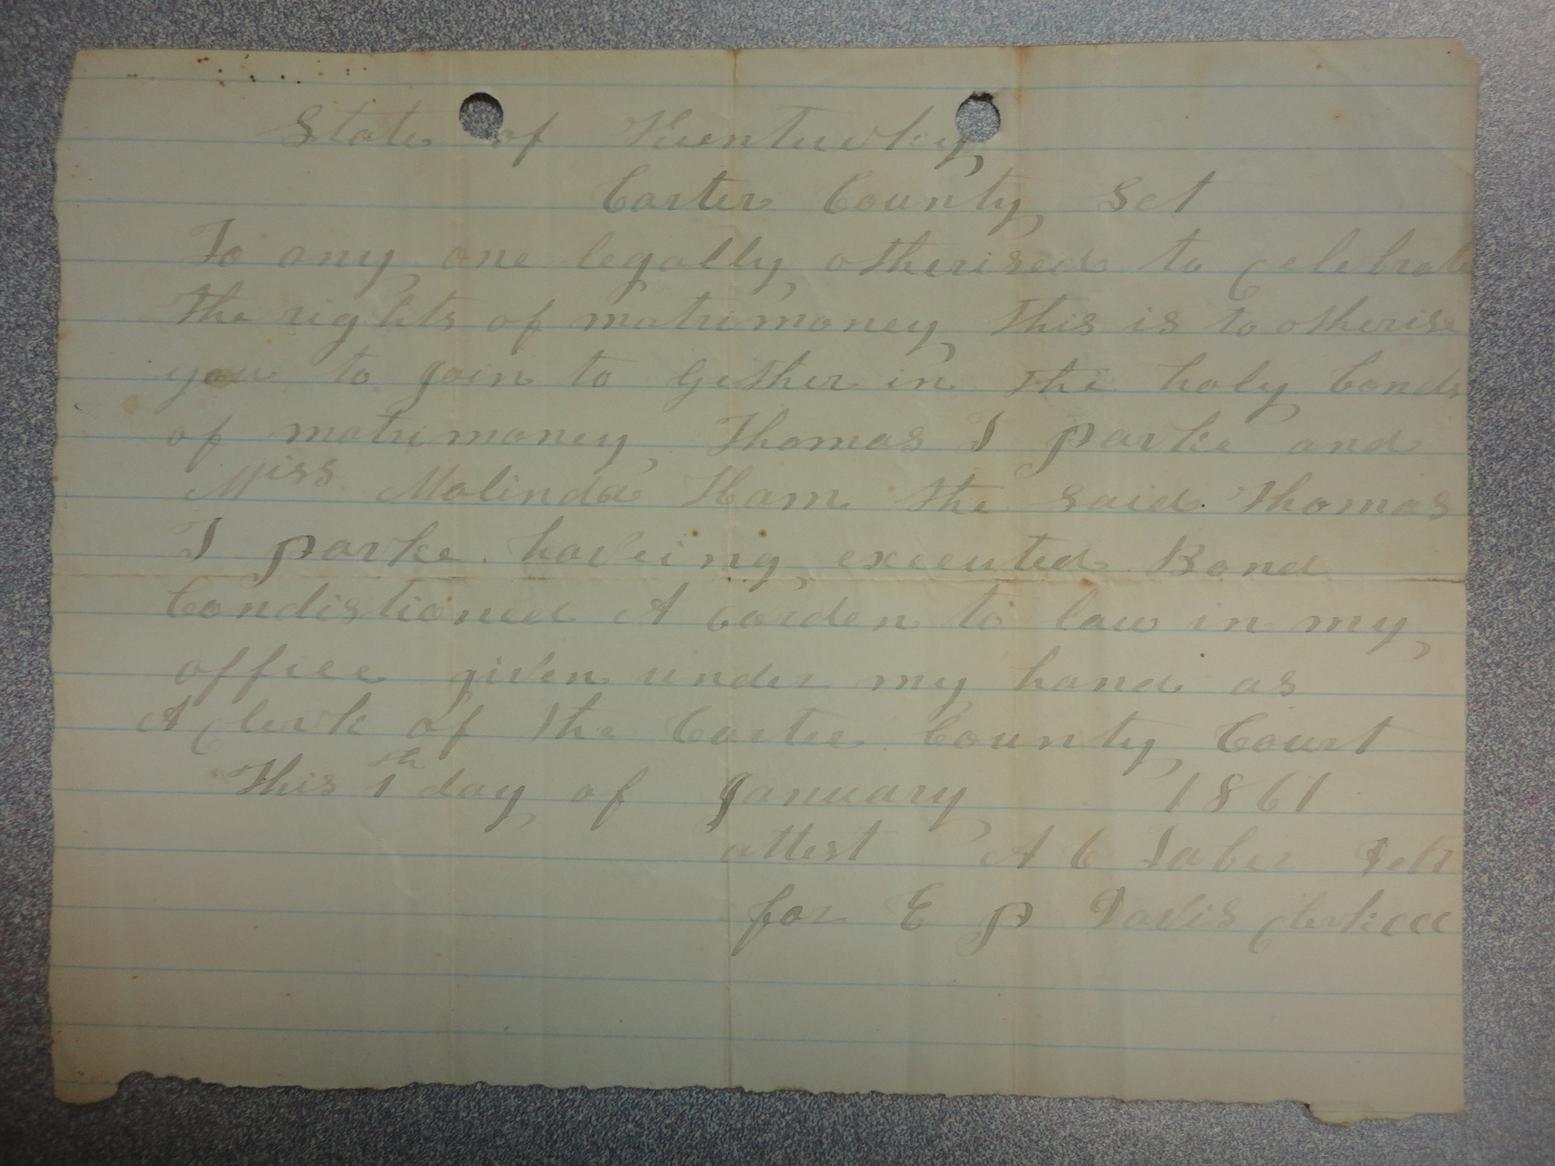 State of Kentucky,
Carter County Sct
To any one legally otherised to celebrate
the rights of matrimoney this is to otherise
you to join to gether in the holy bonds
of matrimoney Thomas J parke and
Miss Malinda Ham the said Thomas
J parke haveing executed Bond
Condistioned A corden to law in my
office given under my hand as
A clerk of the Carter County Court
This 1th day of January 1861
attest A C
for E p Davis clerk